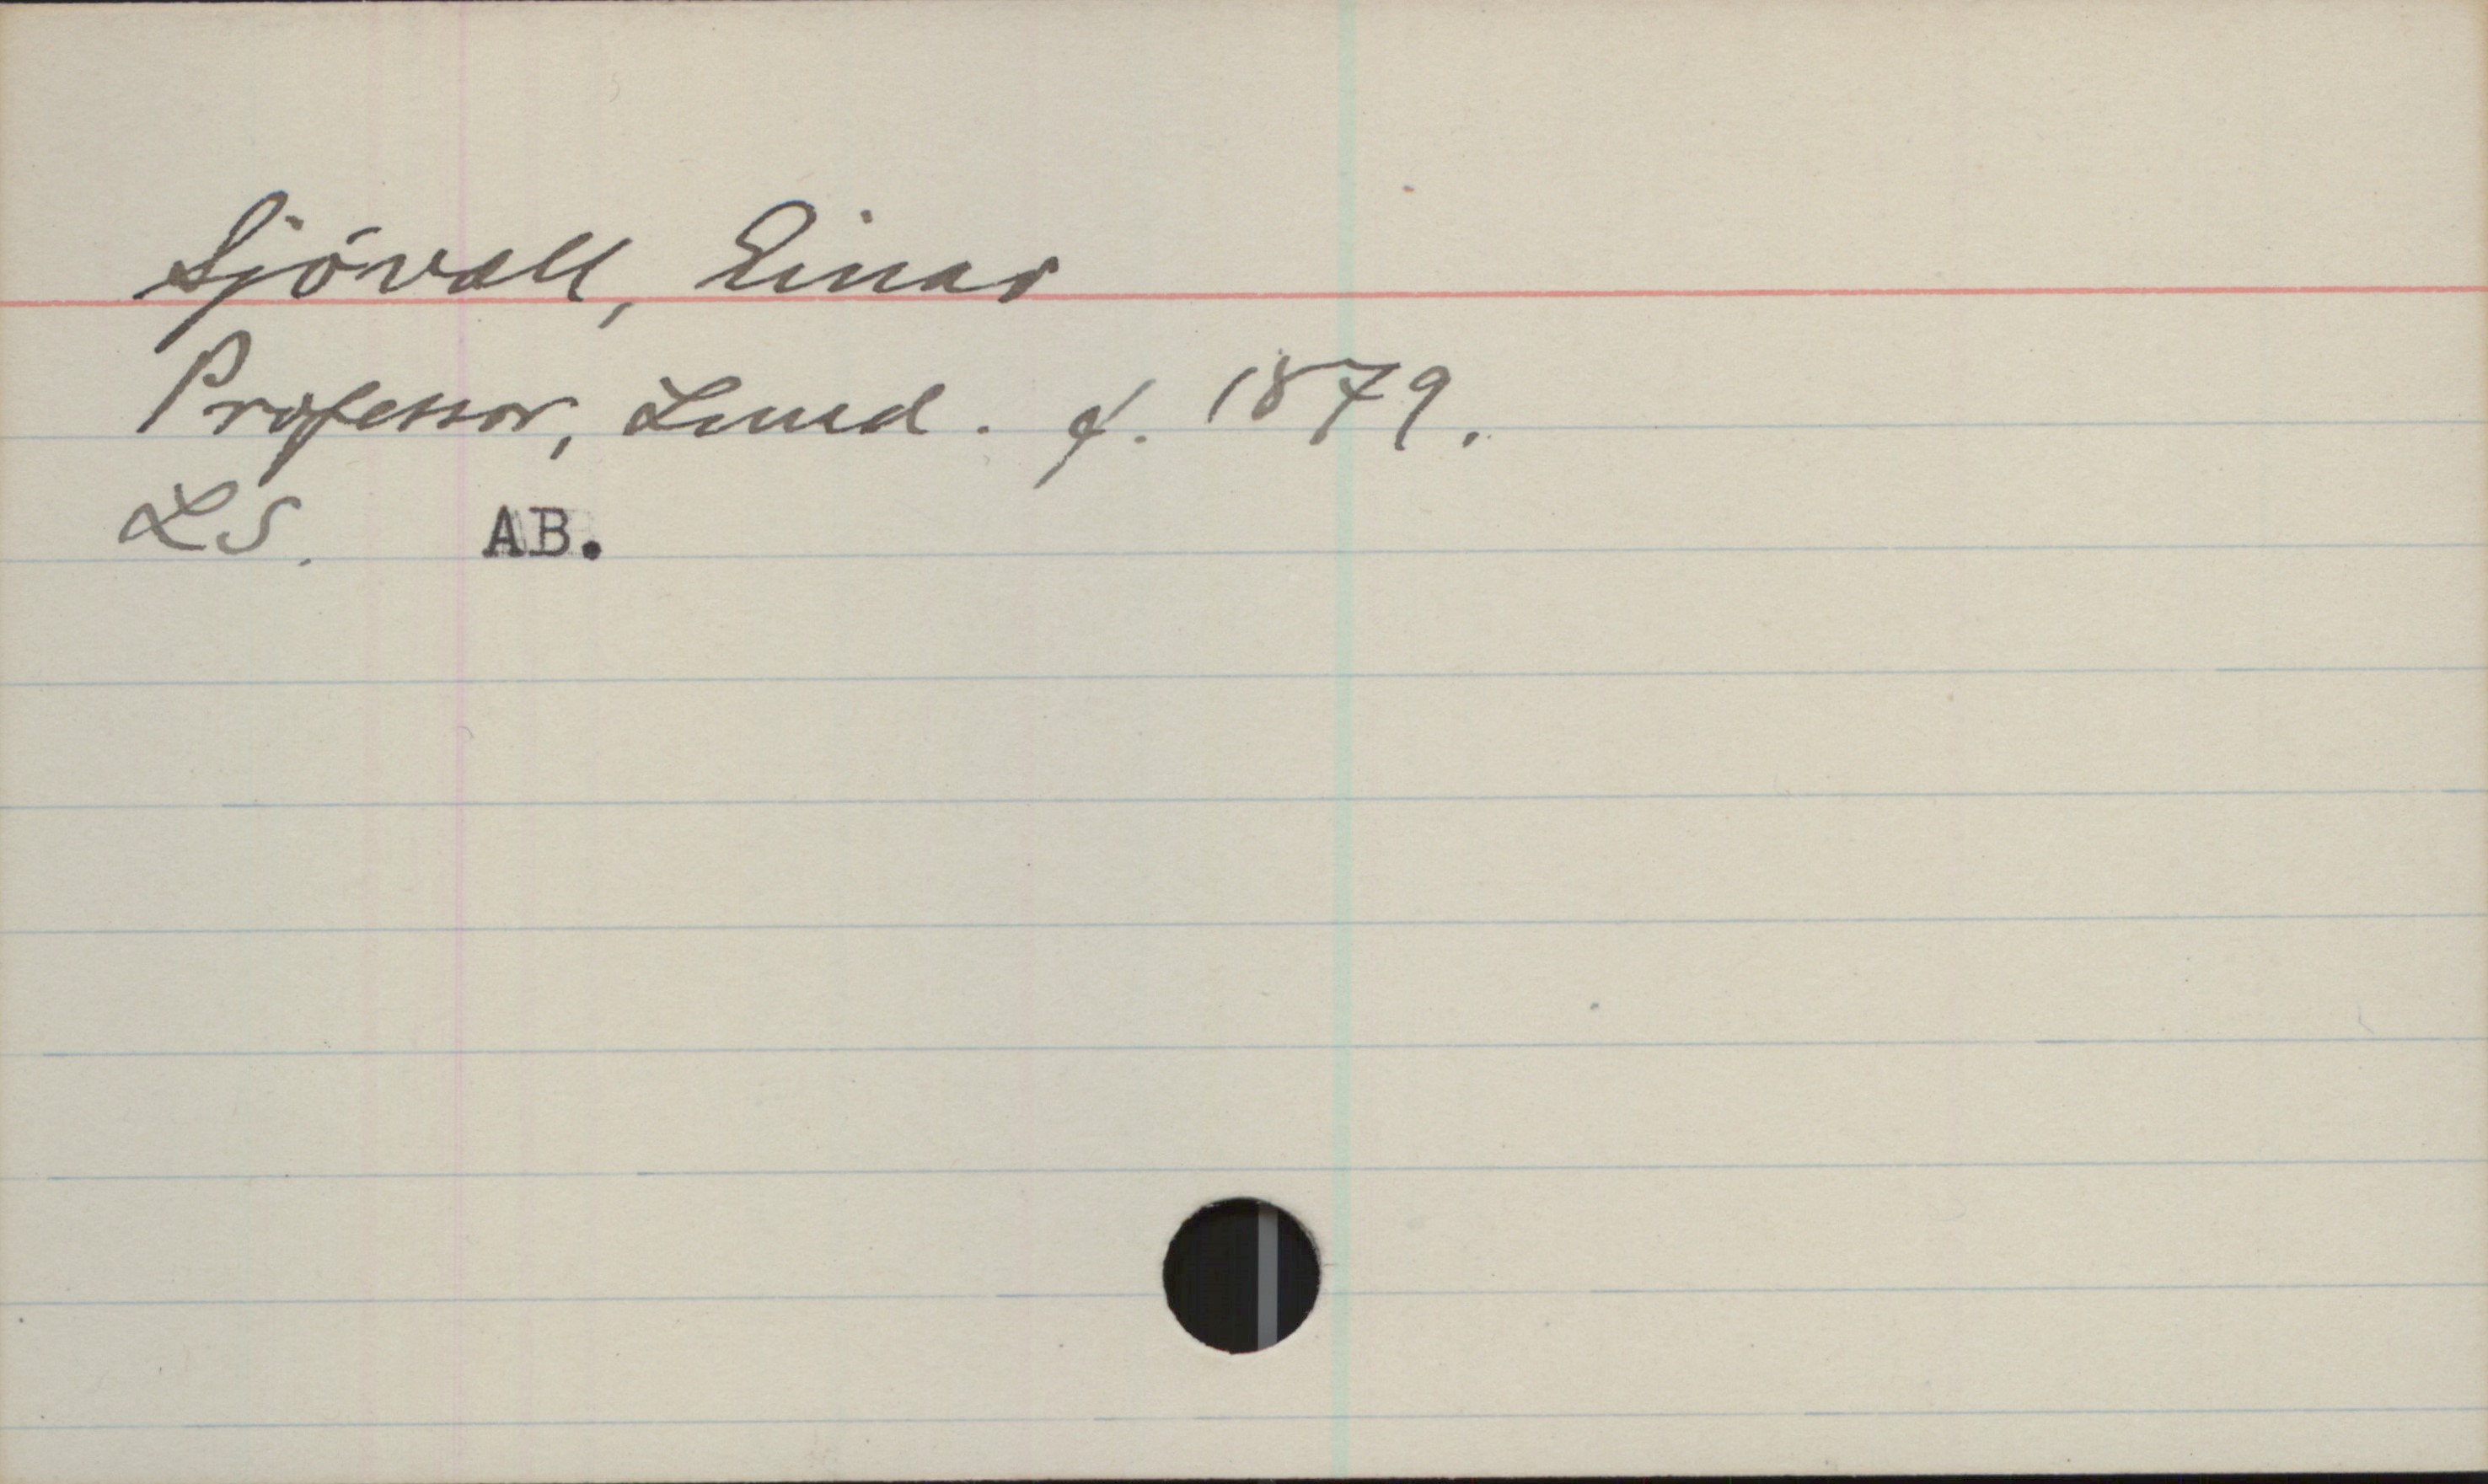 Sjövall, Einar
Professor, Lund. f. 1879.
LS. AB.